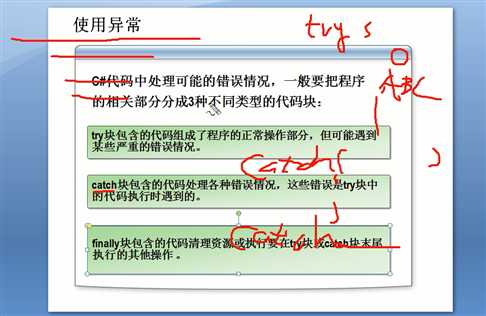 使用异常
try {
ABC
C#代码中处理可能的错误情况，一般要把程序
的相关部分分成3种不同类型的代码块：
try块包含的代码组成了程序的正常操作部分，但可能遇到
某些严重的错误情况。
Catch(        )
catch块包含的代码处理各种错误情况，这些错误是try块中
的代码执行时遇到的。
Catch
finally块包含的代码清理资源或执行要在try块或catch块末尾
执行的其他操作。